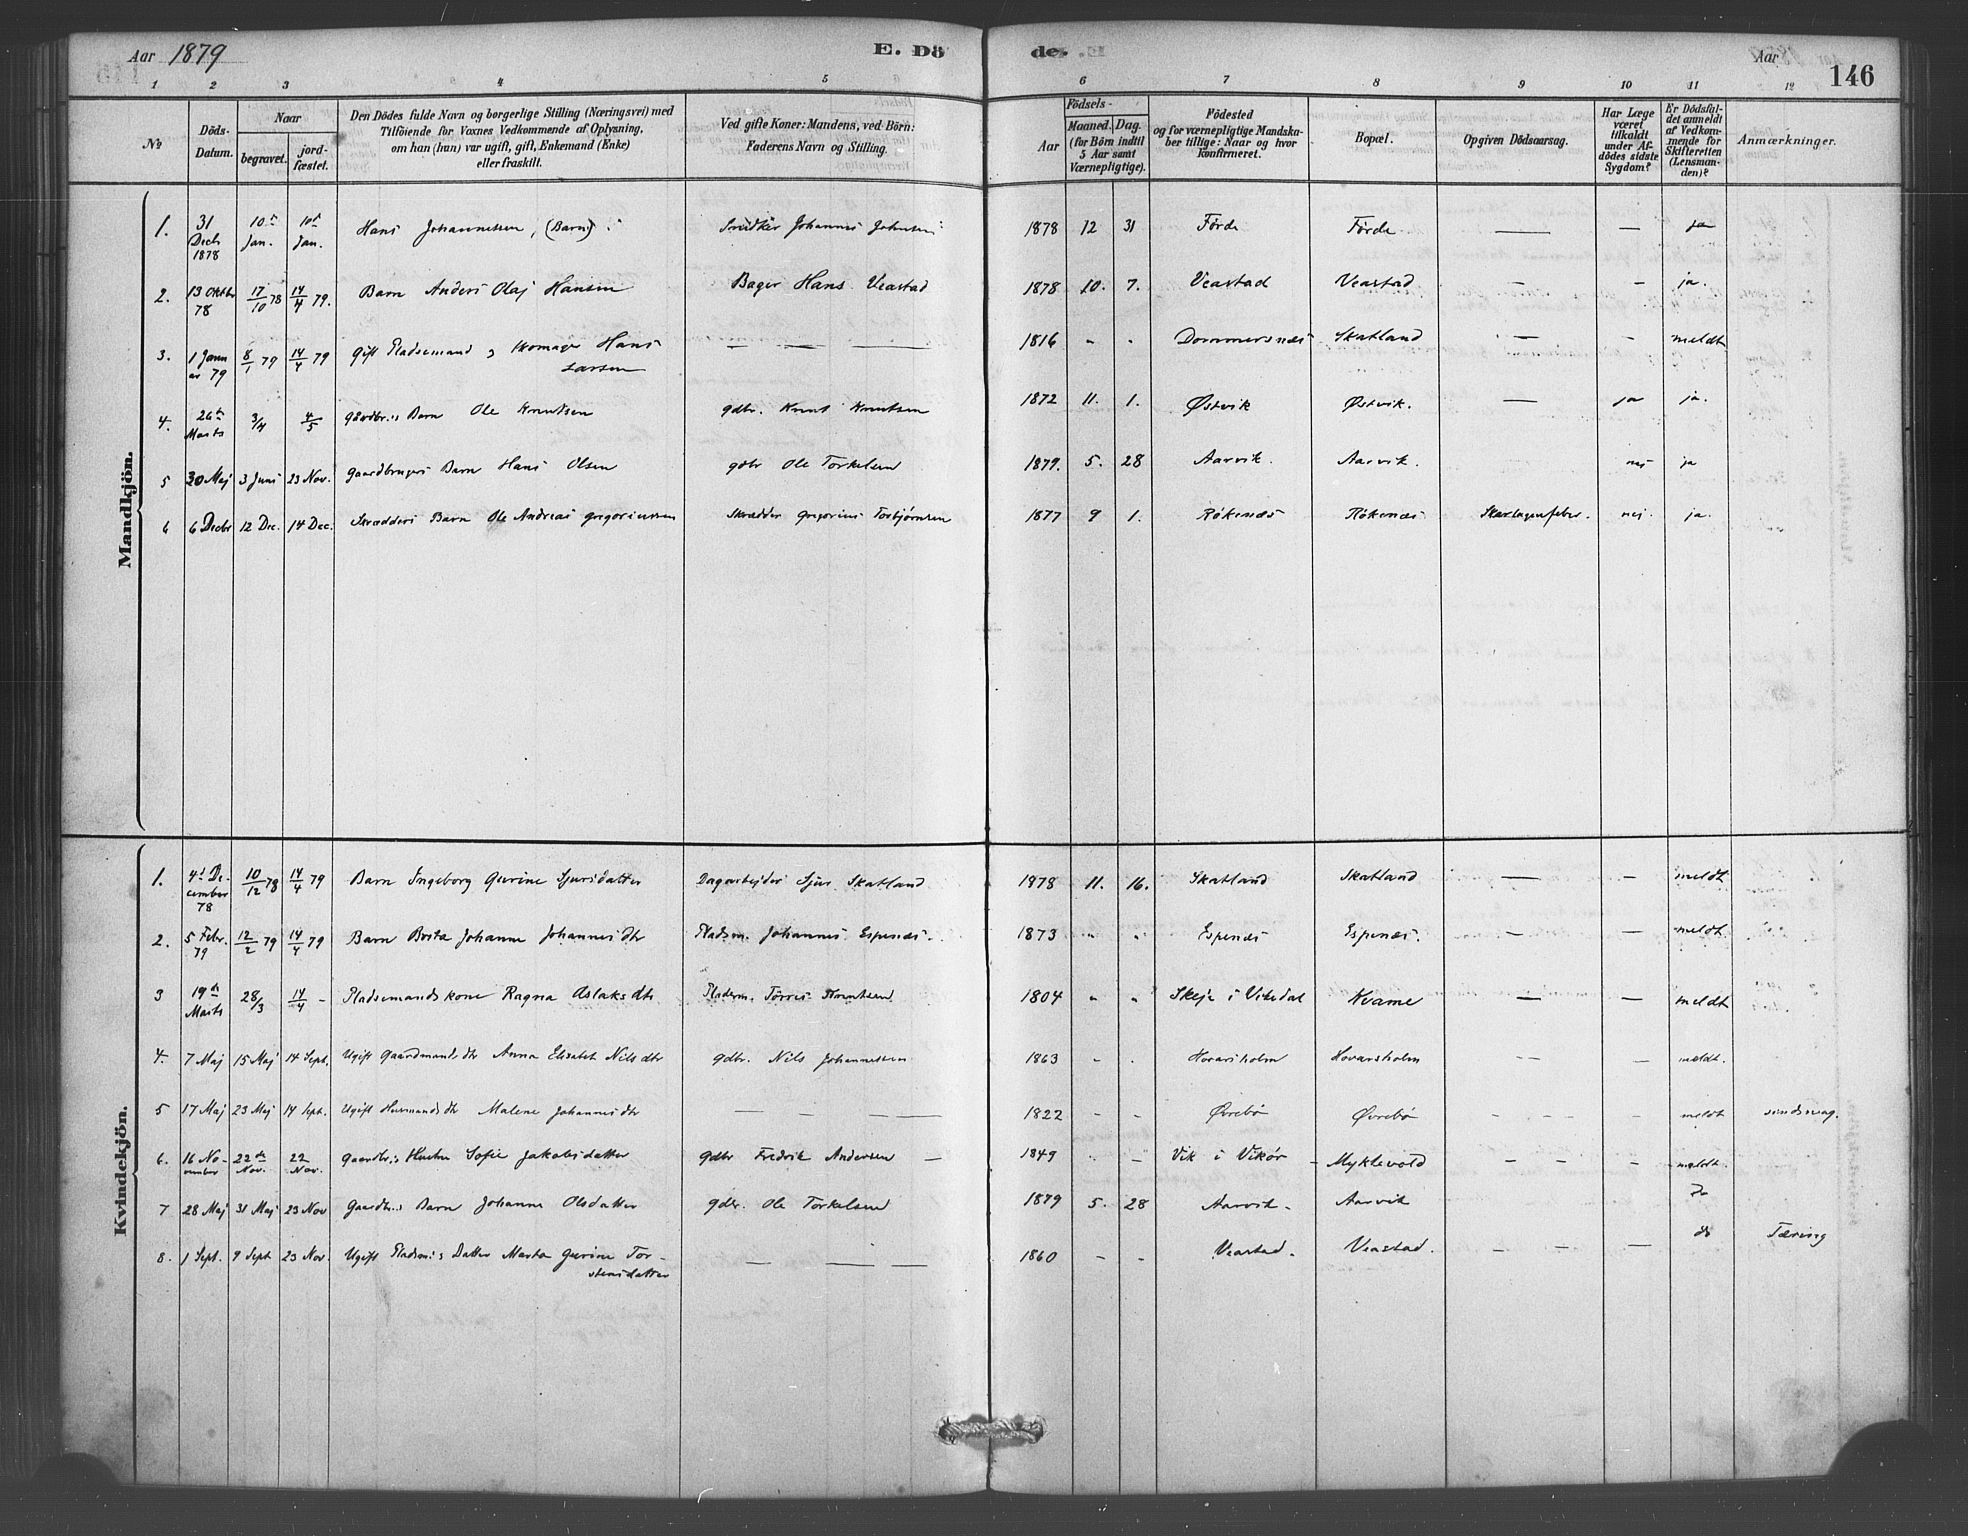 Aar 1879 E. Dö de. Aar 146
1 2 3 4 5 6 7 8 9 10 11 12
No Döds-Datum. Naar begravet. jord-fæstet. Den Dödes fulde Navn og borgerlige Stilling (Næringsvei) med Tilföiende for Voxnes Vedkommende af Oplysning, om han (hun) var ugift, gift, Enkemand (Enke) eller fraskilt. Ved gifte Koner: Mandens, ved Börn: Faderens Navn og Stilling. Aar Födsels- Maaned. Dag. (for Börn indtil 5 Aar samt Værnepligtige). Födested og for værnepligtige Mandska-ber tillige: Naar og hvor Konfirmeret. Bopæl. Opgiven Dödsaarsag. Har Læge været tilkaldt under Af-dödes sidste Sygdom? Er Dödsfal-det anmeldt af Vedkom-mende for Skifteretten (Lensman-den)? Anmærkninger.
Mandkjön.
1. 31 Decb 1878 10de Jan. 10de Jan. Hans Johannessen, (Barn) Snidker Johannes Johnsen 1878 12 31 Förde Förde — — ja
2. 13 Oktbr 78 17/10 78 14/4 79. Barn Anders Olaj Hansen Bager Hans Veastad 1878 10. 7. Veastad Veastad — — ja.
3. 1 Janu ar 79 8/1 79 14/4 79 Gift Pladsemand og Skomager Hans Larsen — — — 1816 - - Dommersnæs Skatland — — meldt
4. 26de Marts 3/4 4/5 Gaardbr.s Barn Ole Knutsen gdbr. Knut Knutsen 1872 11. 1. Østvik Østvik. — ja ja.
5 30 Maj 3 Juni 23 Nov. Gaardbrugers Barn Hans Olsen gdbr Ole Torkelsen 1879. 5. 28 Aarvik. Aarvik. nej ja
6 6 Decbr 12 Dec. 14 Dec. Skrædders Barn Ole Andreas Gregoriussen Skrædder Gregorius Torbjørnsen 1877 9 1. Røkenæs Røkenæs Skarlagensfeber. nej. ja.
Kvindekjön.
1. 4de De-cember 78 10/12 78 14/4 79 Barn Ingeborg Gurine Sjursdatter Dagarbejder Sjur Skatland 1878 11. 16. Skatland Skatland — — meldt
2. 5 Febr. 79 12/2 79 14/4 79 Barn Brita Johanna Johannesdtr Pladsm. Johannes Espenæs. 1873 - - Espenæs Espenæs. — — meldt.
3 19de Marts 28/3 14/4 - Pladsemandskone Ragna Aslaksdtr Pladsm. Torres Knutsen 1804 - - Skeje i Vikedal Kvame — — meldt
4. 7 Maj 15 Maj 14 Sept. Ugift Gaardmandsdtr Anna Elisabet Nilsdtr gdbr. Nils Johannessen 1863 - - Hovarsholm Hovarsholm — — meldt.
5 17 Maj 23 Maj 14 Sept. Ugift Husmandsdtr Malene Johannesdtr — — — — 1822 - - Øvrebø Øvrebø - - - - meldt sindssvag.
6. 16 No-vember 22de Nov. 22 Nov. Gaardbr.s Hustru Sofie Jakobsdatter gdbr Fredrik Andersen — 1849 - - Vik i Vikør - Myklevold - - - - meldt.
7 28 Maj 31 Maj 23 Nov Gaardbr.s Barn Johanna Olsdatter gdbr. Ole Torkelsen 1879 5. 28 Aarvik - Aarvik Ja
8. 1 Sept. 9 Sept 23 Nov. Ugift Pladsm.s Datter Marta Gurine Tor-stensdatter — — — 1860 - - Veastad. Veastad. - - — do Tæring